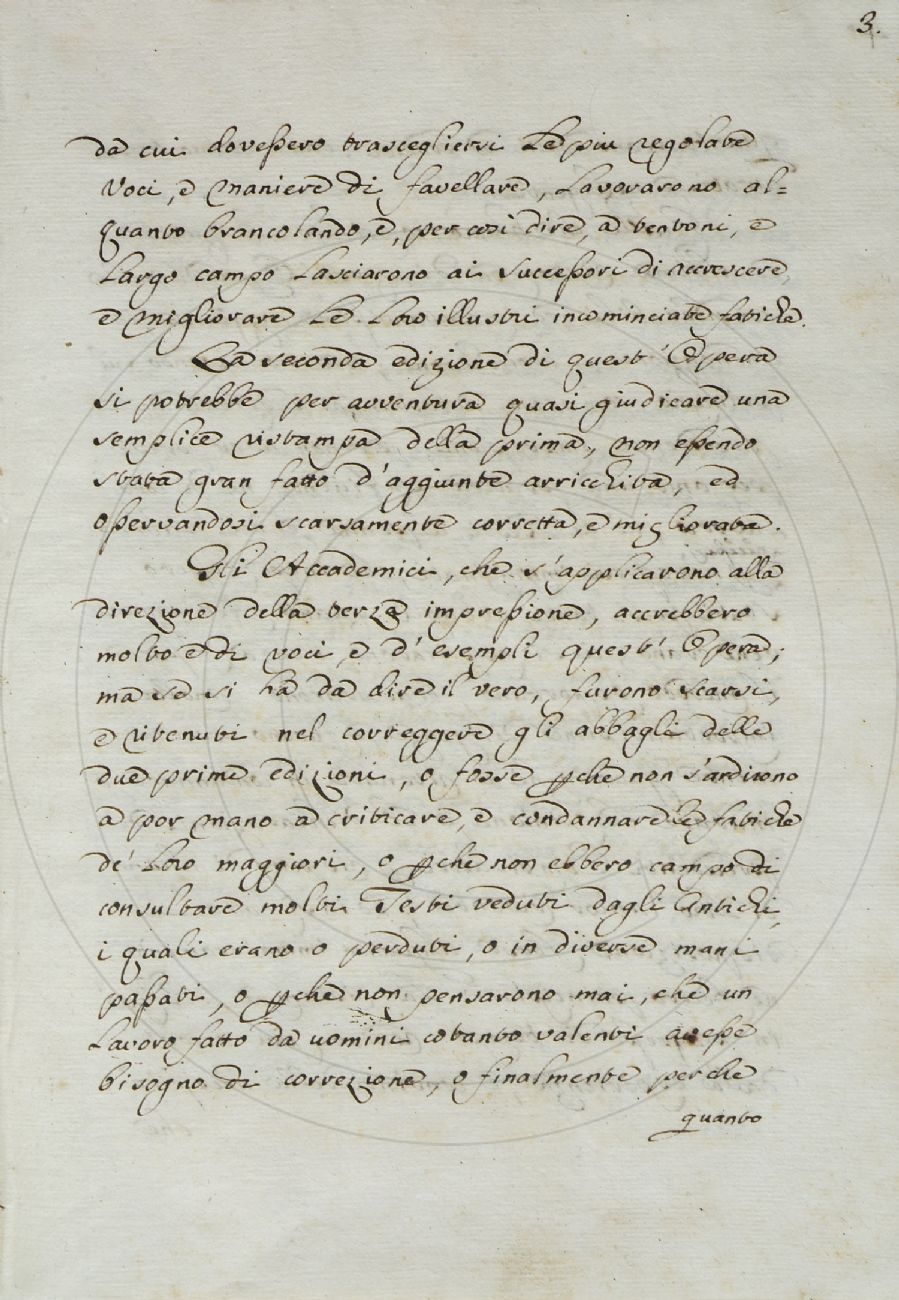 3.
da cui dovessero trascegliersi le piu regolate
voci, e maniere di favellare, lavorarono al=
quanto brancolando, e, per così dire, a tentoni, e
largo campo lasciarono ai successori di accrescere,
e migliorare le loro illustri incominciate fatiche.
La seconda edizione di quest' Opera
si potrebbe per avventura quasi giudicare una
semplice ristampa della prima, non essendo
stata gran fatto d'aggiunte arricchita, ed
osservandosi scarsamente corretta, e migliorata.
Gli Accademici, che s'applicarono alla
direzione della terza impressione, accrebbero
molto e di voci, e d'esempli quest' Opera;
ma se si ha da dire il vero, furono scarsi,
e ritenuti nel correggere gli abbagli delle
due prime edizioni, o fosse ꝑchè non s'ardirono
a por mano a criticare, e condannare le fatiche
de' loro maggiori, o ꝑchè non ebbero campo di
consultare molti Testi veduti dagli Antichi,
i quali erano o perduti, o in diverse mani
passati, o ꝑchè non pensarono mai, che un
lavoro fatto da uomini cotanto valenti avesse
bisogno di correzione, o finalmente perche
quanto